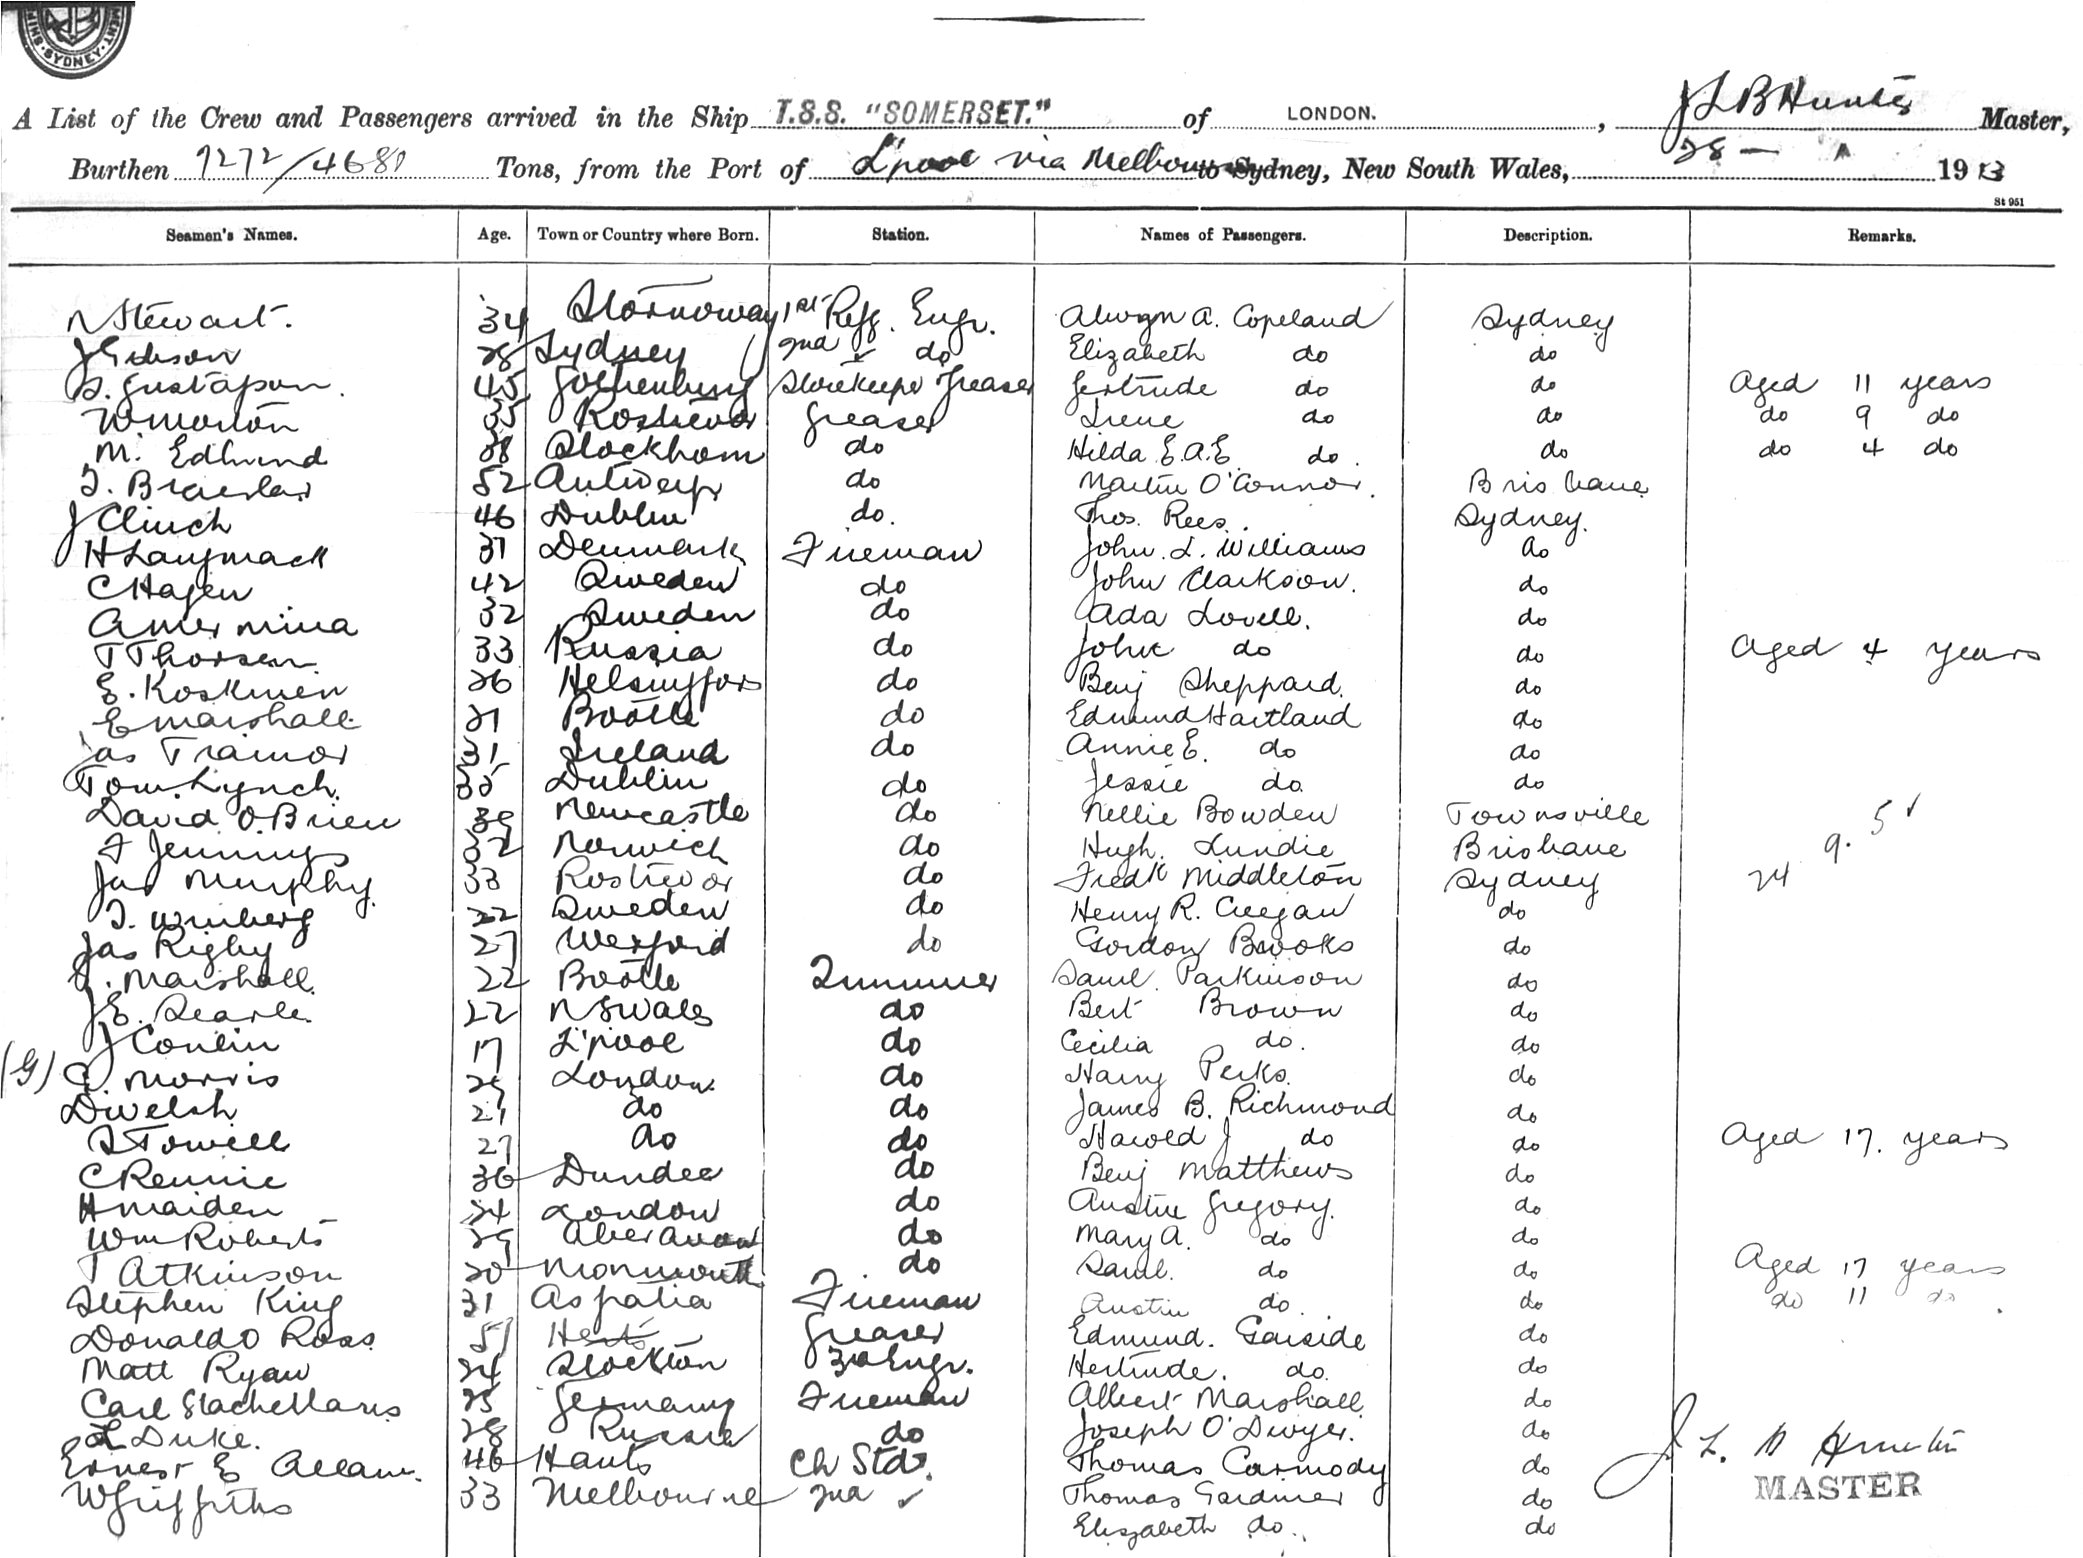 SHIPPING · SYDNEY
A List of the Crew and Passengers arrived in the Ship T.S.S. "SOMERSET." of LONDON. , J L B Hunter Master,
Burthen 7272/4681 Tons, from the Port of L'pool via Melbourne to Sydney, New South Wales, 28 - 1913
St 951
Seamen's Names. Age. Town or Country where Born. Station. Names of Passengers. Description. Remarks.
N Stewart. 34 Stornoway 1st Refg. Engr. Alwyn A. Copeland Sydney
J Gibson 28 Sydney 2nd do Elizabeth do do
S. Gustafson. 45 Gothenburg Storekeeper Greaser Gertrude do do Aged 11 years
W Morton 35 Rostrevor Greaser Irene do do do 9 do
M. Edlund 38 Stockhom do Hilda E.A.E. do. do do 4 do
52 Antwerp do Martin O'Connor. Brisbane
J Clinch 46 Dublin do. Thos. Rees. Sydney.
H Langmack 37 Denmark Fireman John. L. Williams do
C Hagen 42 Sweden do John Clarkson. do
A Mermina 32 Sweden do Ada Lovell. do
T Thorsen 33 Russia do John do do Aged 4 years
E. Koskinen 26 Helsingfors do Benj Sheppard. do
E Marshall 21 Bootle do Edmund Hartland do
Jas Trainor 31 Ireland do Annie E. do do
Tom. Lynch. 35 Dublin do Jessie do. do
David O'Brien 39 Newcastle do Nellie Bowden Townsville
F Jennings 32 Norwich do Hugh. Lundie Brisbane 24 9. 51
Jas Murphy 33 Rostrevor do Fredk Middleton Sydney
T. Winberg 22 Sweden do Henry R. Creegan do
Jas Rigby 27 Wexford do Gordon Brooks do
J. Marshall. 22 Bootle Trimmer Saml. Parkinson do
J E. Searle. 22 N S Wales do Bert Brown do
J Conlin 17 L'pool do Cecilia do. do
(G) C. Morris 29 London do Harry Perks. do
D Welsh 21 do do James B. Richmond do
S Towill 27 do do Harold J do do Aged 17. years
C Rennie 36 Dundee do Benj Matthews do
H Maiden 24 London do Austin Gregory. do
Wm Roberts 29 Aberavon do Mary A. do do
T Atkinson 20 Monmouth do Saml. do do Aged 17 years
Stephen King 31 Aspatia Fireman Austin do. do do 11 do.
Donald Ross 51 Herts Greaser Edmund. Garside do
Matt Ryan 24 Stockton 3rd Engr. Hertrude. do. do
Carl 25 Germany Fireman Albert Marshall. do
L Duke. 28 Russia do Joseph O'Dwyer. do
Ernest E Allan. 46 Hants Ch Std. Thomas Carmody do J. L. B Hunter
W Griffiths 33 Melbourne 2nd Thomas Gardiner do MASTER
Elizabeth do. do